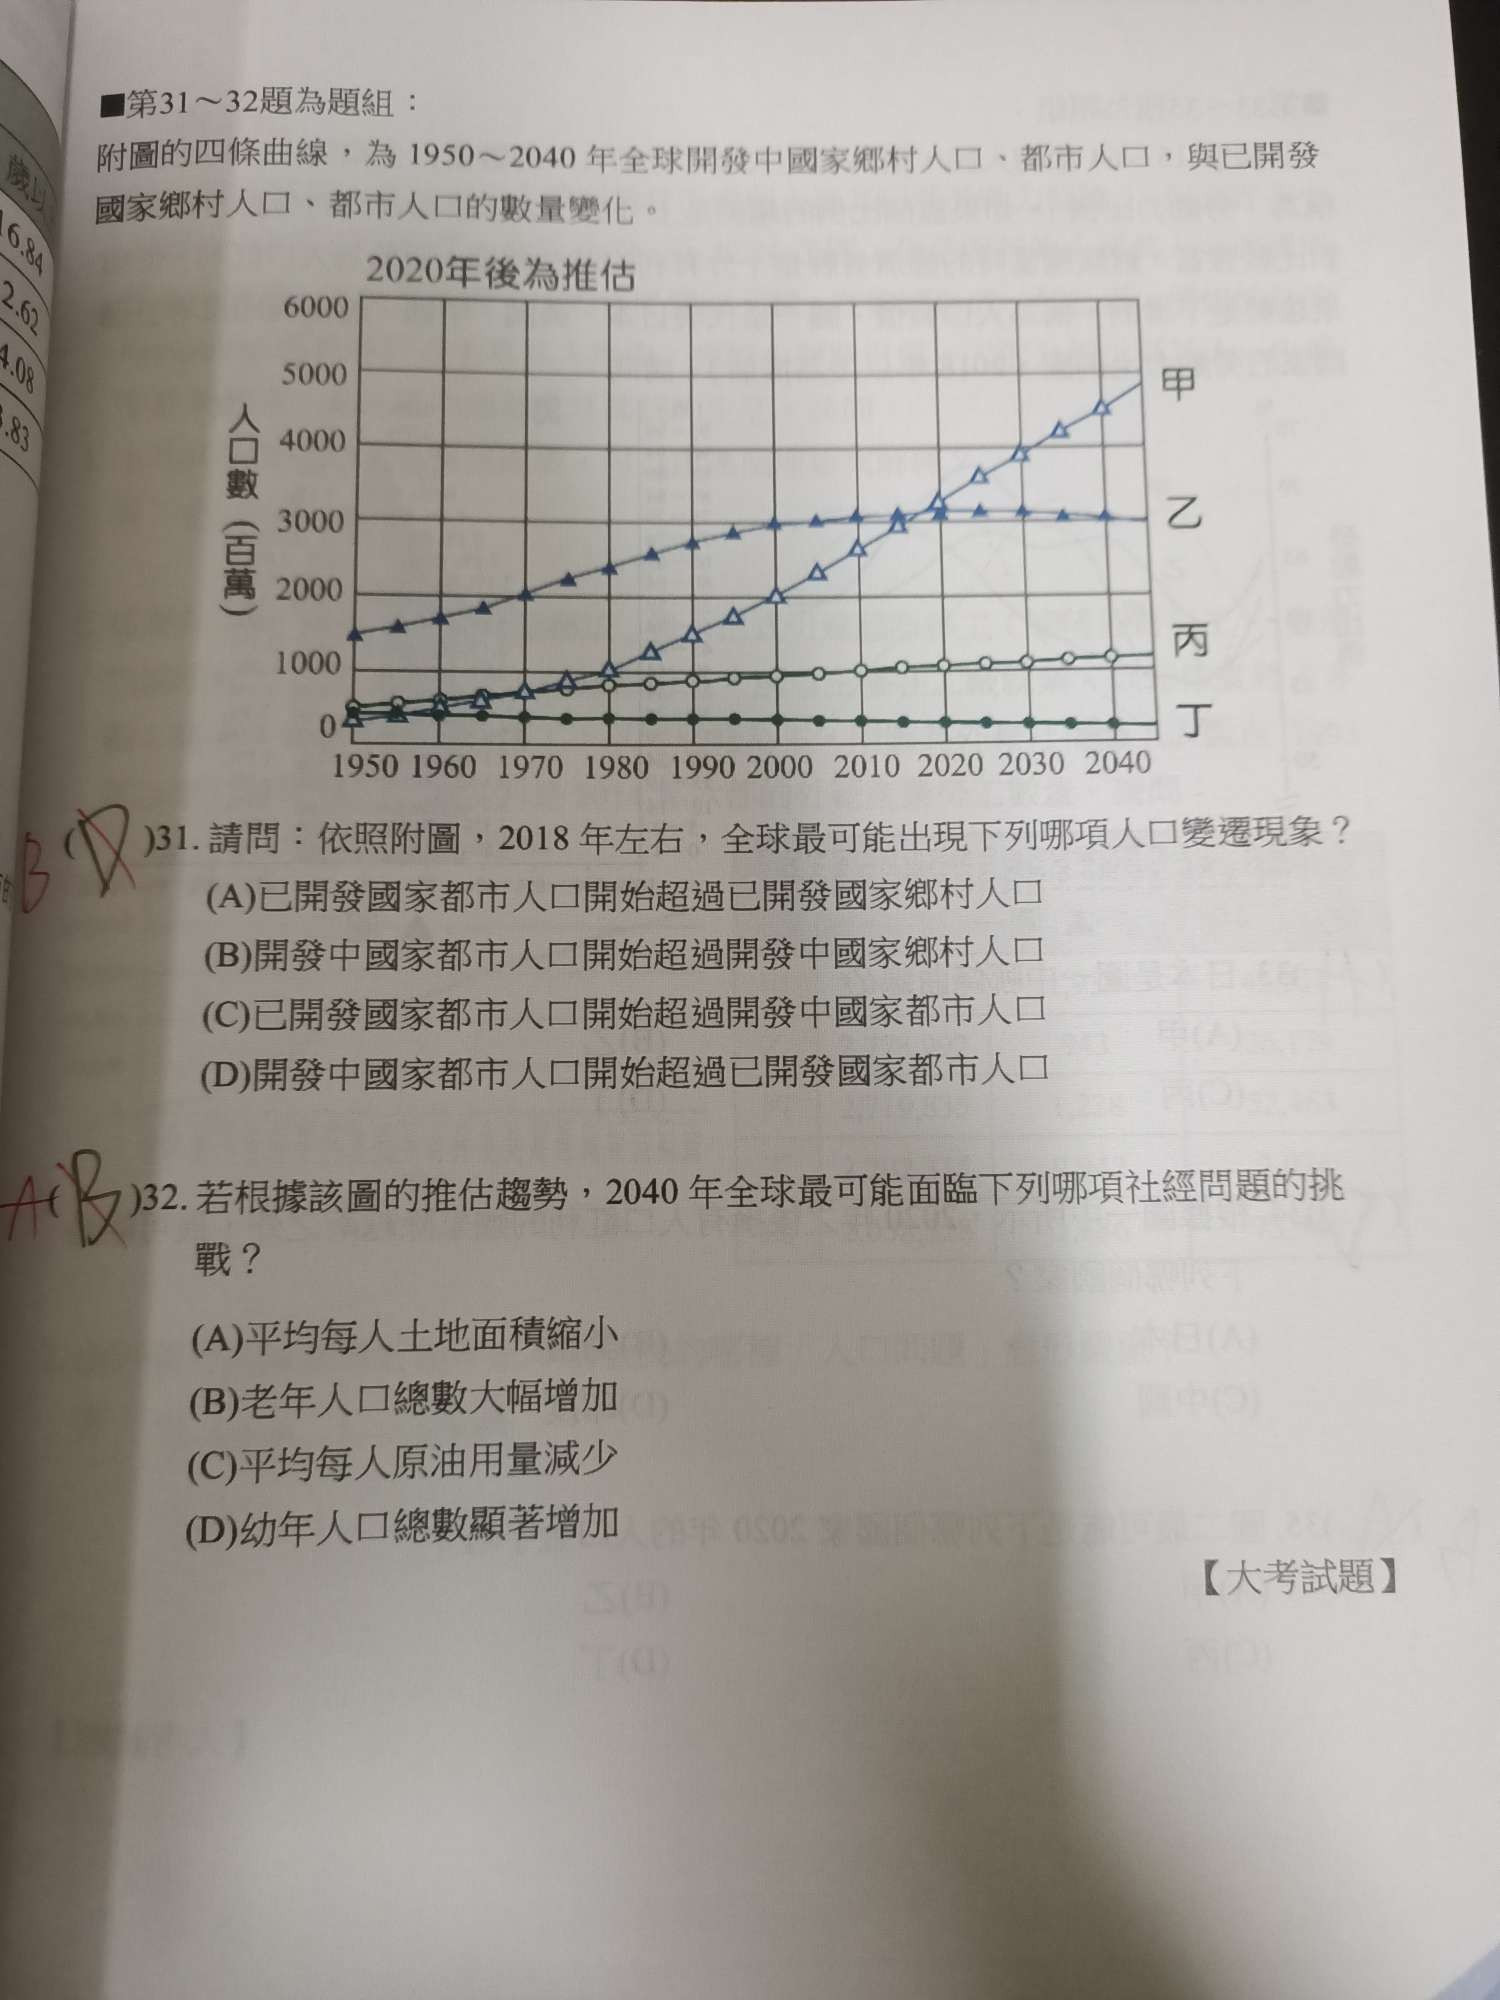 ■第31～32題為題組：
附圖的四條曲線，為 1950～2040 年全球開發中國家鄉村人口、都市人口，與已開發
國家鄉村人口、都市人口的數量變化。
2020年後為推估
6000
5000
4000
3000
2000
1000
0
人口數（百萬）
甲
乙
丙
丁
1950 1960 1970 1980 1990 2000 2010 2020 2030 2040
B (D)31. 請問：依照附圖，2018 年左右，全球最可能出現下列哪項人口變遷現象？
(A)已開發國家都市人口開始超過已開發國家鄉村人口
(B)開發中國家都市人口開始超過開發中國家鄉村人口
(C)已開發國家都市人口開始超過開發中國家都市人口
(D)開發中國家都市人口開始超過已開發國家都市人口
A (B)32. 若根據該圖的推估趨勢，2040 年全球最可能面臨下列哪項社經問題的挑
戰？
(A)平均每人土地面積縮小
(B)老年人口總數大幅增加
(C)平均每人原油用量減少
(D)幼年人口總數顯著增加
【大考試題】
歲以
16.84
2.62
4.08
3.83